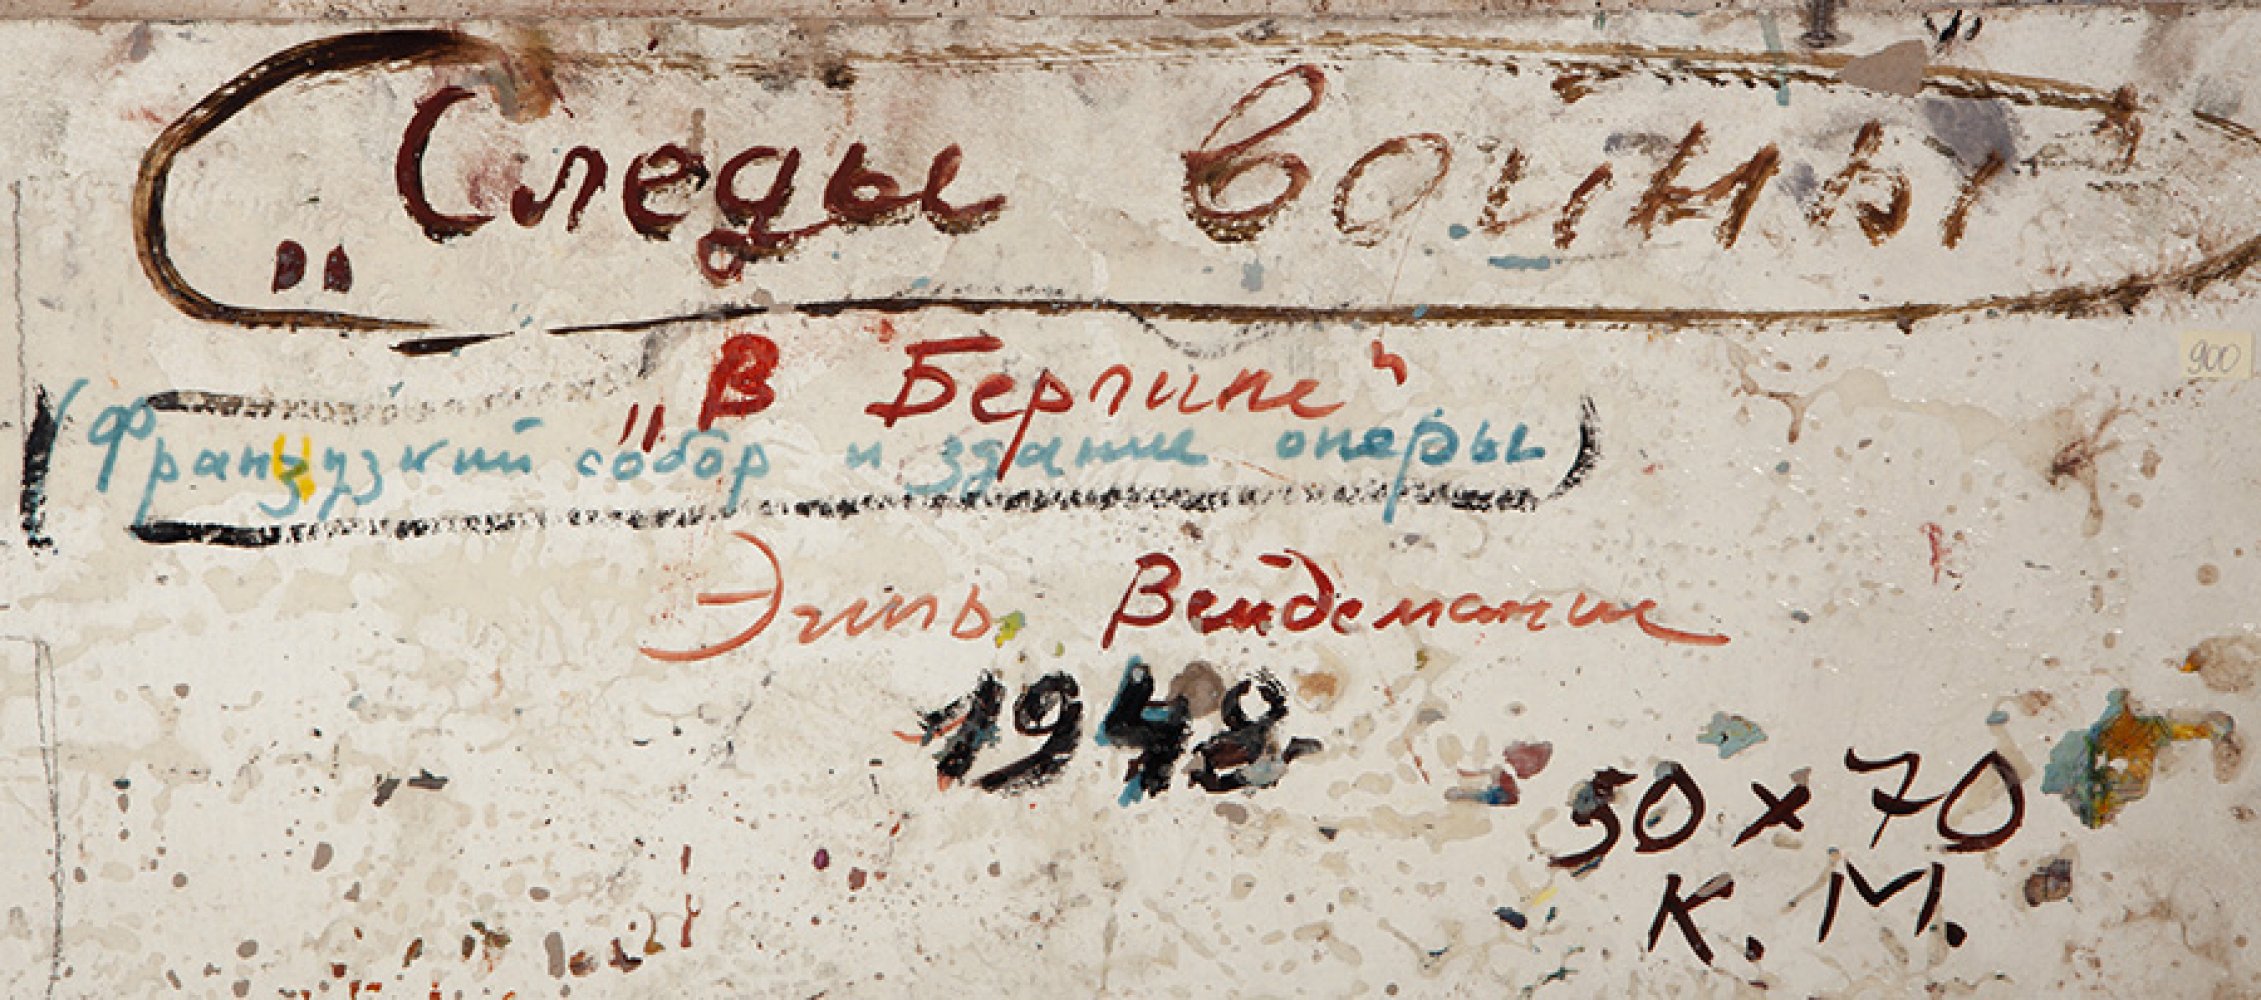 „Следы войны
900
„В Берлине“
(Французкий собор и здание оперы)
Эгиль Вейдеманис
1948
50 x 70
К. М.